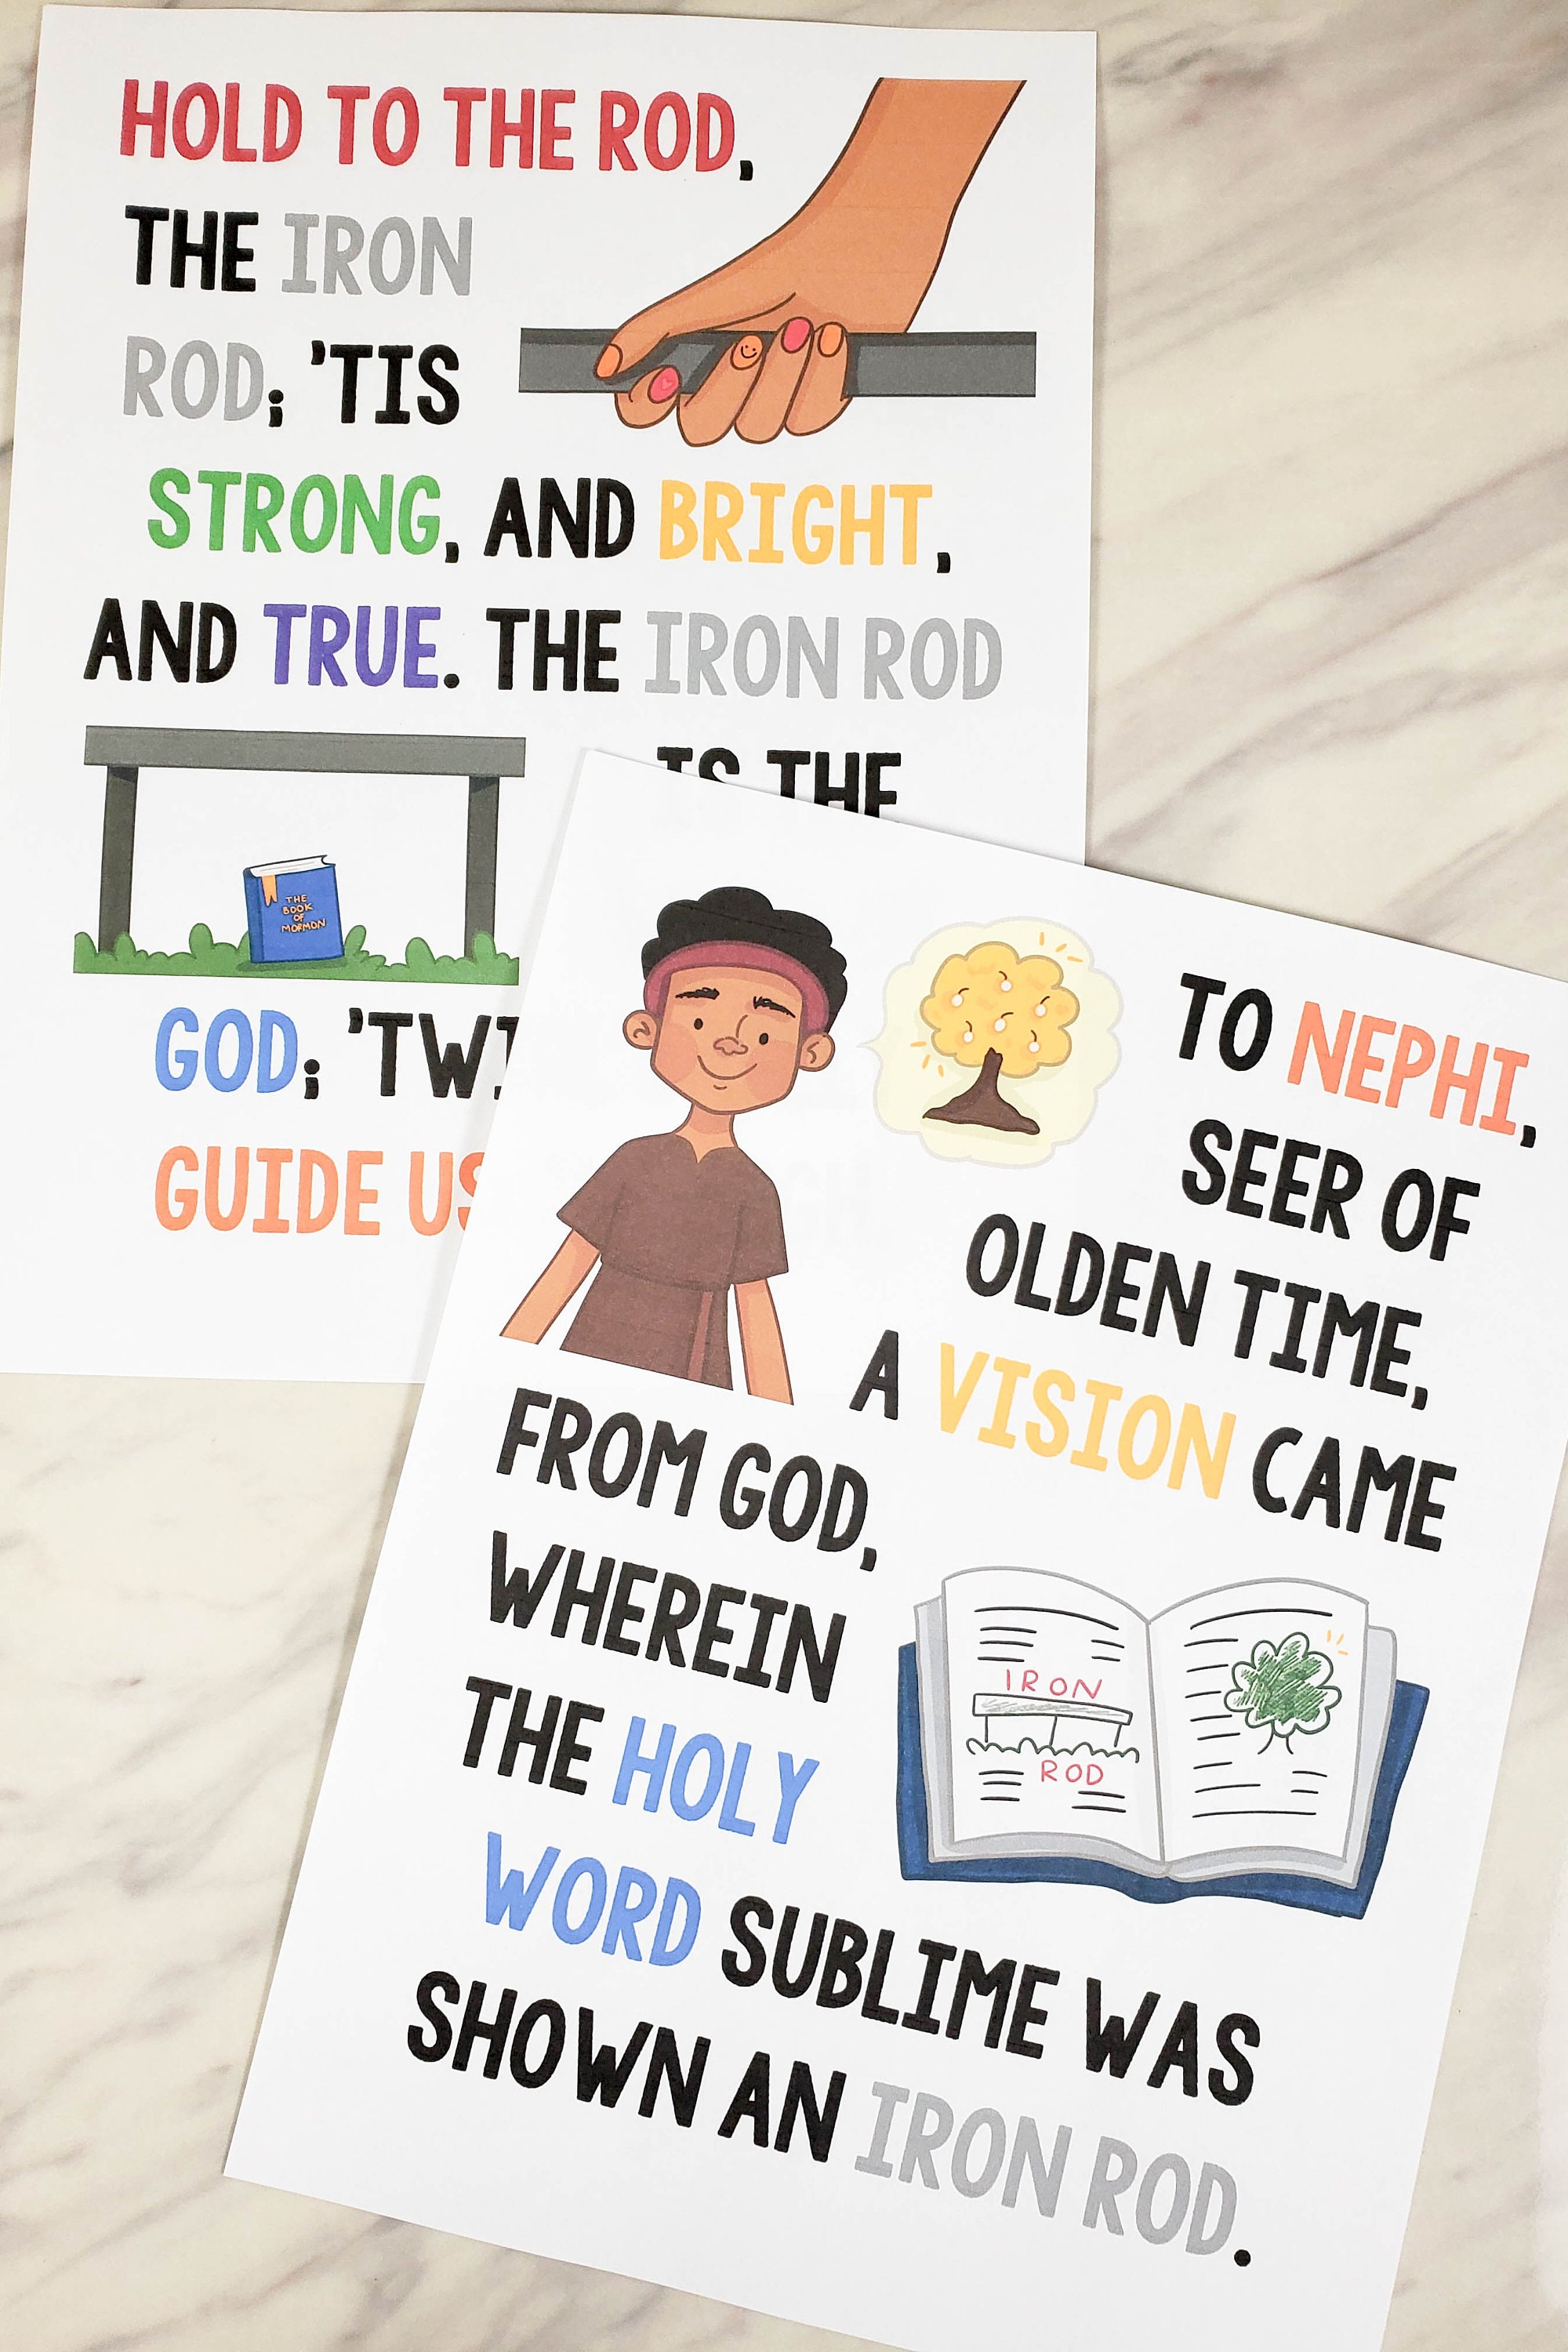 HOLD TO THE ROD,
THE IRON
ROD; 'TIS
STRONG, AND BRIGHT,
AND TRUE. THE IRON ROD
IS THE
THE
BOOK
OF
MORMON
GOD; 'TWI
GUIDE US
TO NEPHI,
SEER OF
OLDEN TIME,
A VISION CAME
FROM GOD,
WHEREIN
THE HOLY
WORD SUBLIME WAS
SHOWN AN IRON ROD.
IRON
ROD